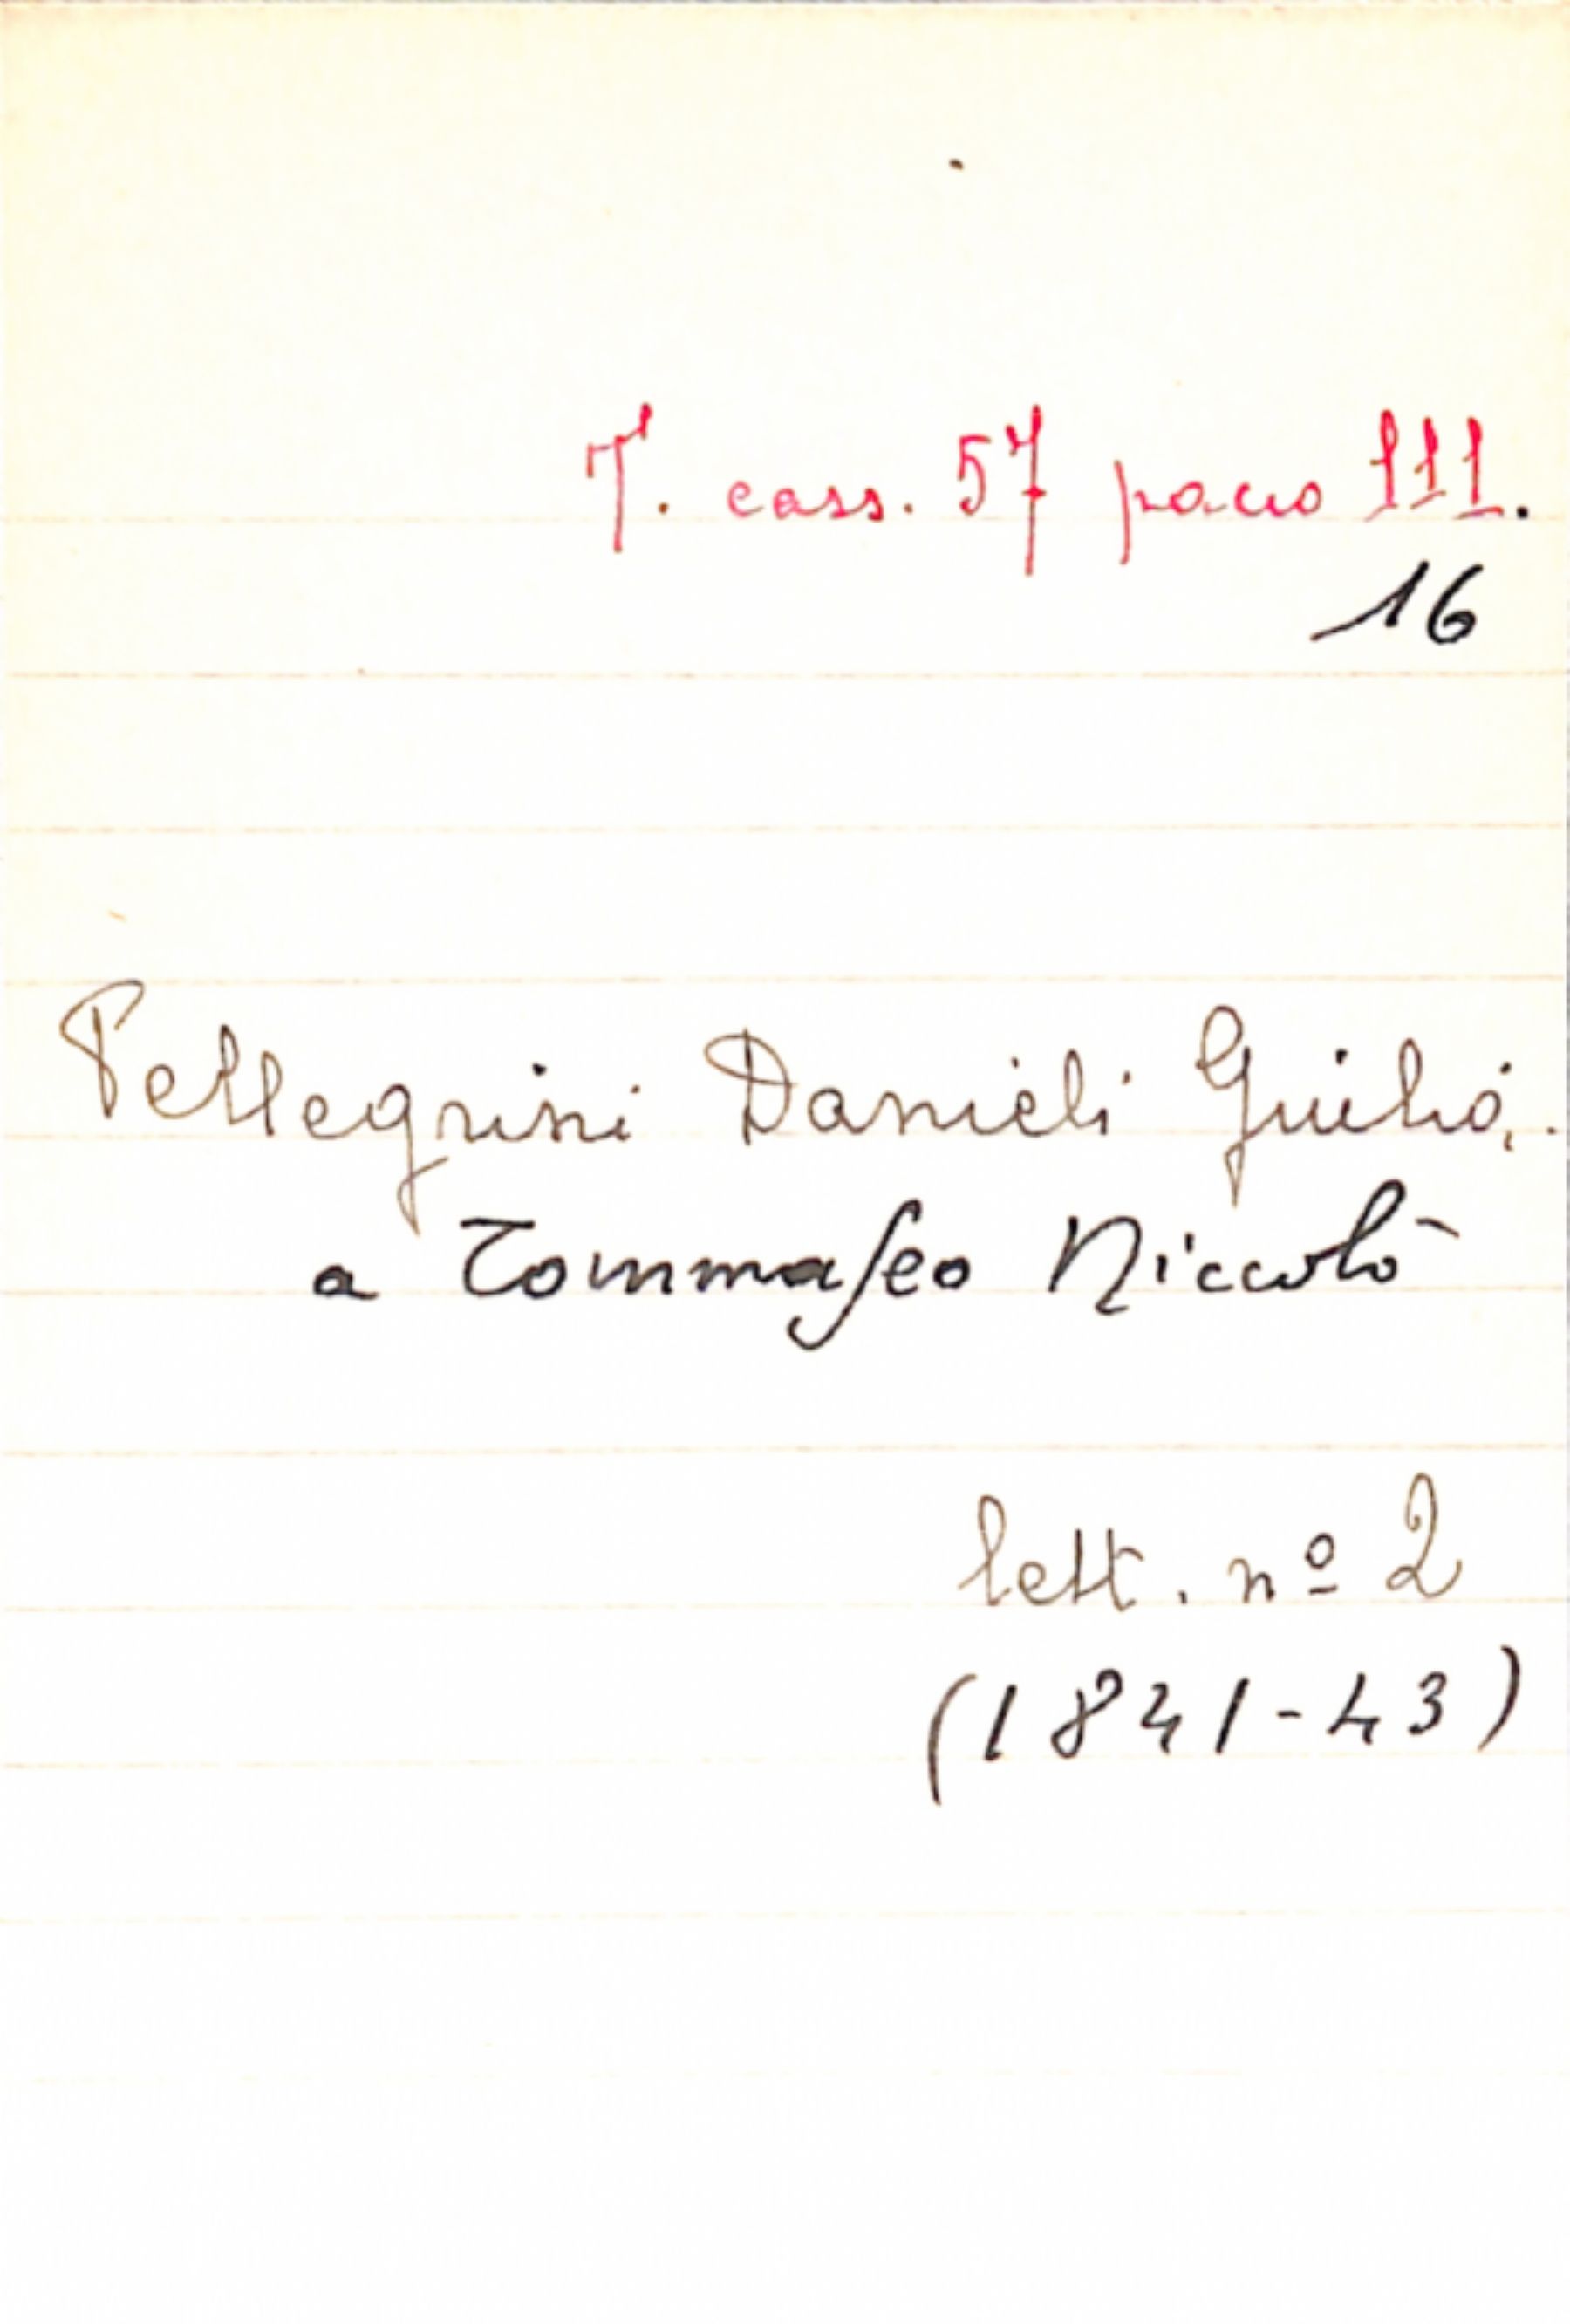 T. cass. 57 pacco III.
16
Pellegrini Danieli Giulio.
a Tommaseo Niccolò
lett. nº 2
(1841-43)